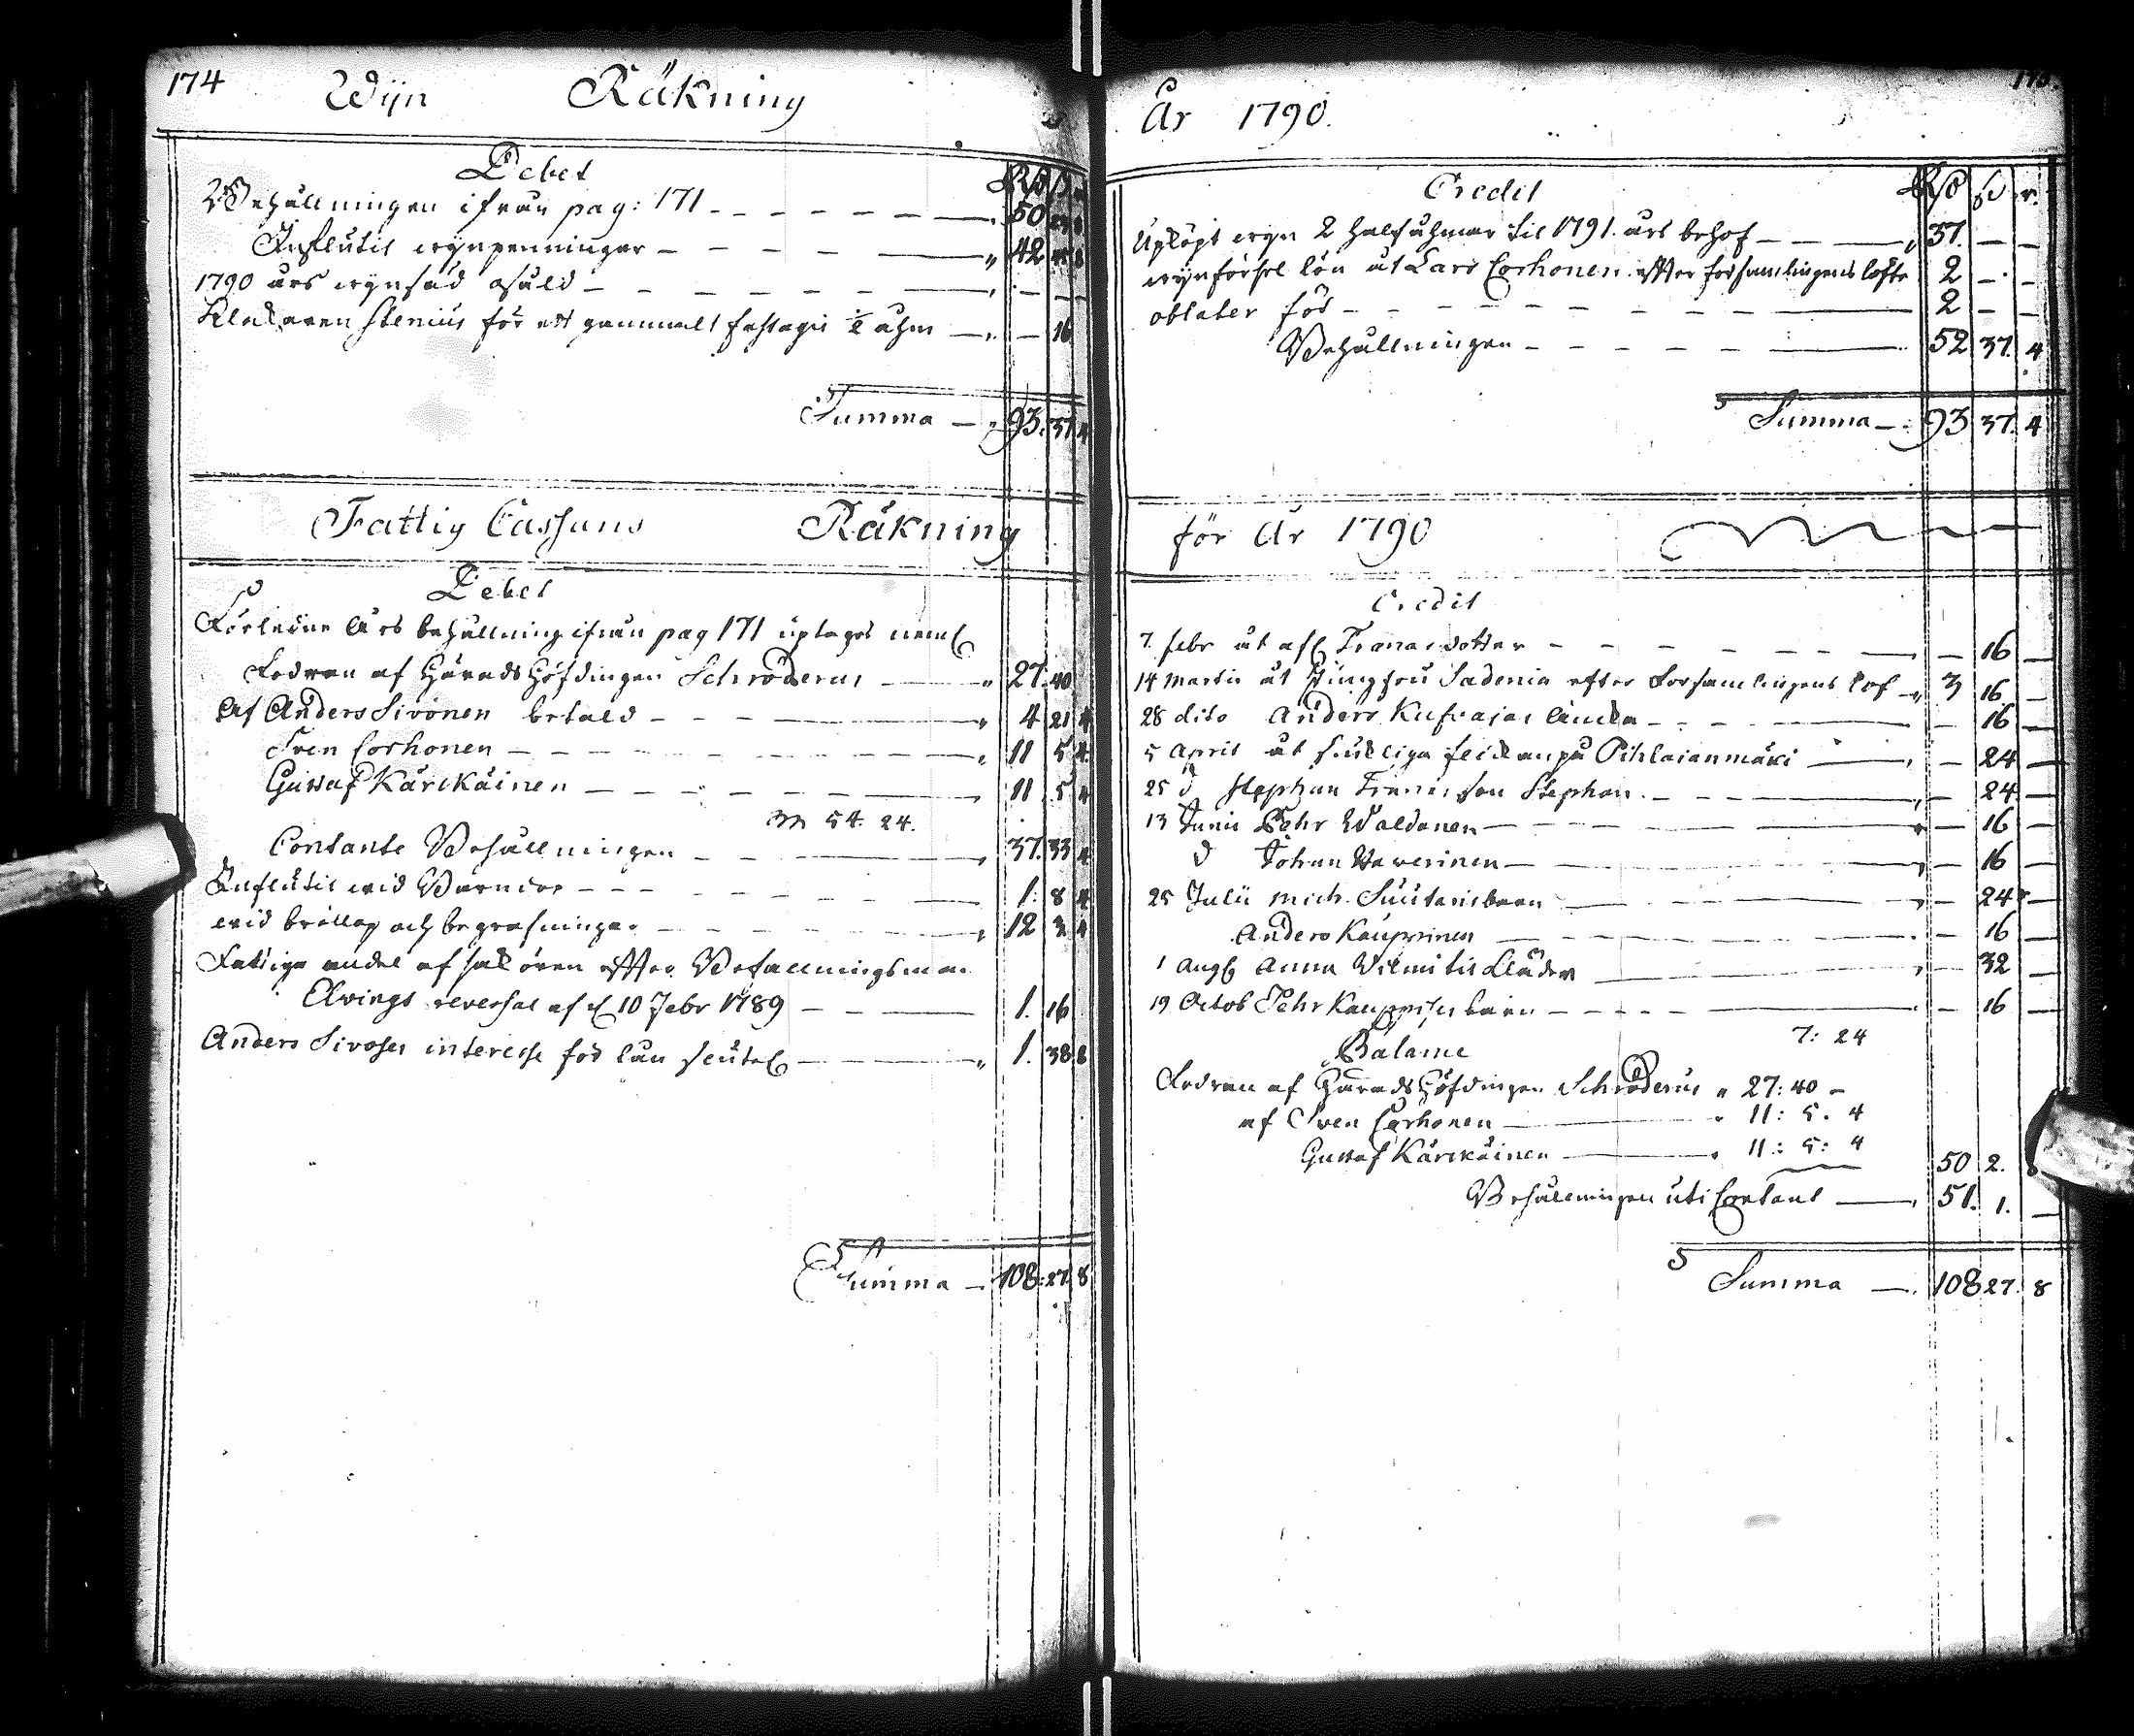 174
Wijn Räkning
Debet
Rd s r
Behållningen ifrån pag: 171 50
Influtit wijnpenningar 42
1790 års wijnsäd osåld
Klockaren Stenius för ett gammalt fastagie ½ åhm 16
Summa 93. 37 4
Fattig Cassans Räkning
Debet
Förledne års behållning ifrån pag 171 uptages neml
Fodran af HäradsHöfdingen Schröderus 27. 40
Af Anders Sivonen betald 4 21 4
Sven Corhonen 11 5 4
Gustaf Kärckäinen 11 5 4
54. 24.
Contante Behållningen 37. 33 4
Influtit wid Barndop 1. 8 4
wid bröllop och begrafningar 12 3 4
Fattiga andel af sakören efter Befallningsman
Elvings reversal af d 10 Febr 1789 1. 16
Anders Sivoses interesse för lån 1. 38 8
Summa 108. 27 8
175.
År 1790.
Credit
Rd s r.
Upköpt wyn 2 halfåhmar til 1791. års behof 37. — —
wynförsel lön åt Lars Corhonen efter församlingens löfte 2 — —
oblater för 2 — —
Behållningen 52 37. 4
Summa 93 37. 4
för År 1790
Credit
7. febr åt dotter — 16 —
14 Martii åt Jungfru Sadenia efter Församlingens lof 3 16 —
28 dito Anders — 16 —
5 April åt siukliga på Pihlaianmäki — 24 —
25 d Stephan Stephan — 24 —
13 Junii Pehr Waldanen — 16 —
d Johan Waverinen — 16 —
25 Julii Mich. Suutaris barn — 24 —
Anders Kauppinen — 16 —
1 Aug Anna — 32 —
19 Octob Pehr Kauppises barn — 16 —
7: 24
Balance
Fodran af HäradsHöfdingen Schröderus 27: 40 —
af Sven Corhonen 11: 5. 4
Gustaf Kärckäinen 11: 5: 4
50 2.
Behållningen uti Contant 51. 1. —
Summa 108 27. 8